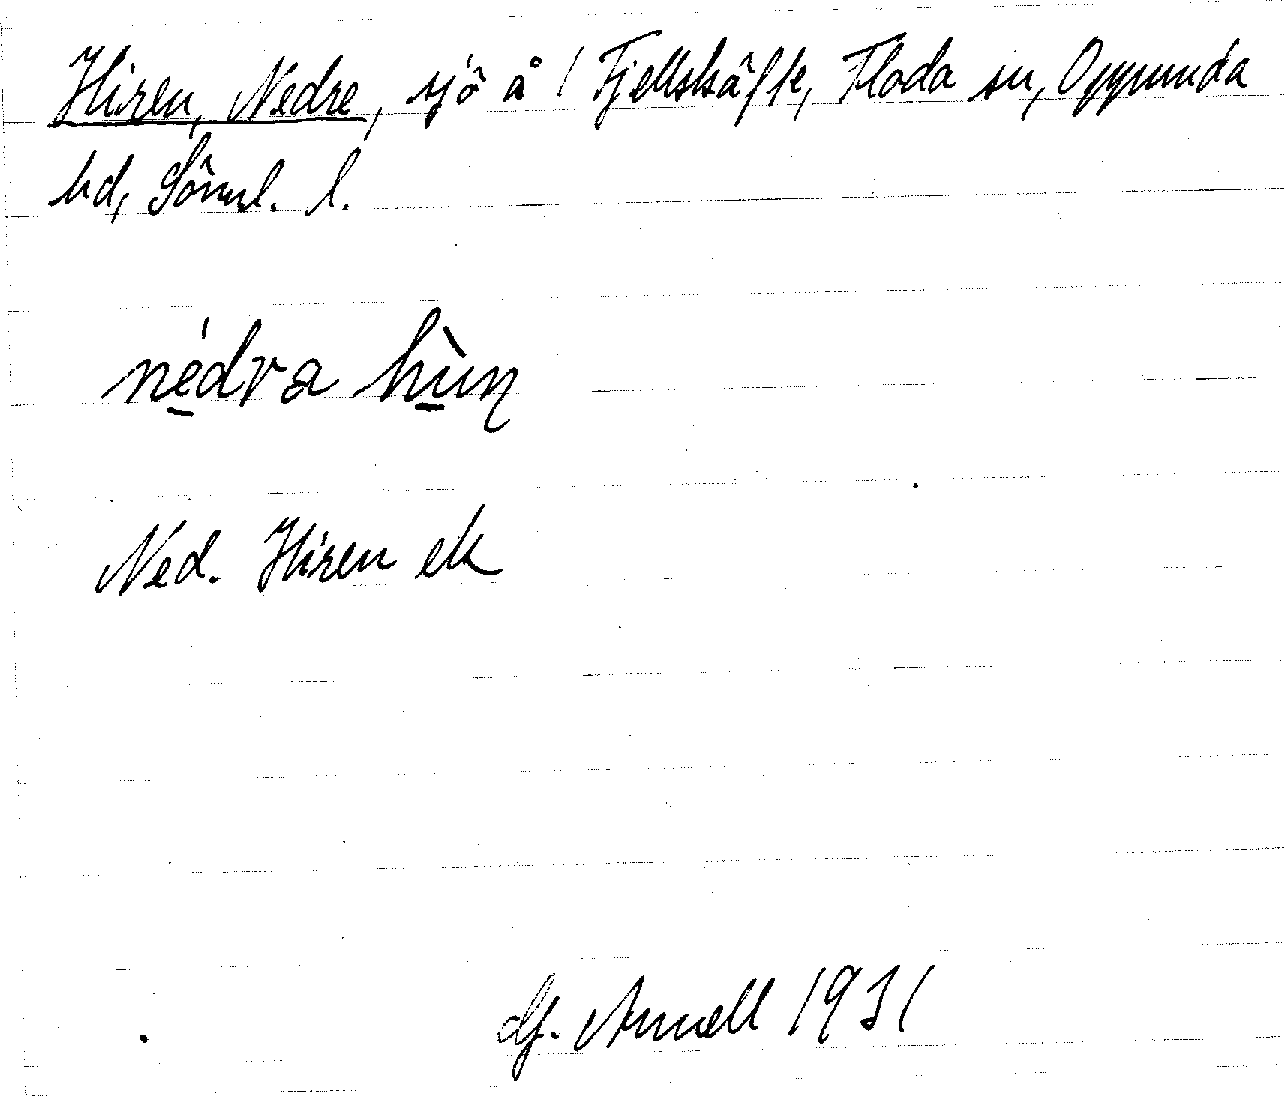 Hiren, Nedre, sjö å 1 Fjellskäfte, Floda sn, Oppunda
hd, Söml. l.
nédra hìrn
Ned. Hiren ek
Gf. Arnell 1931